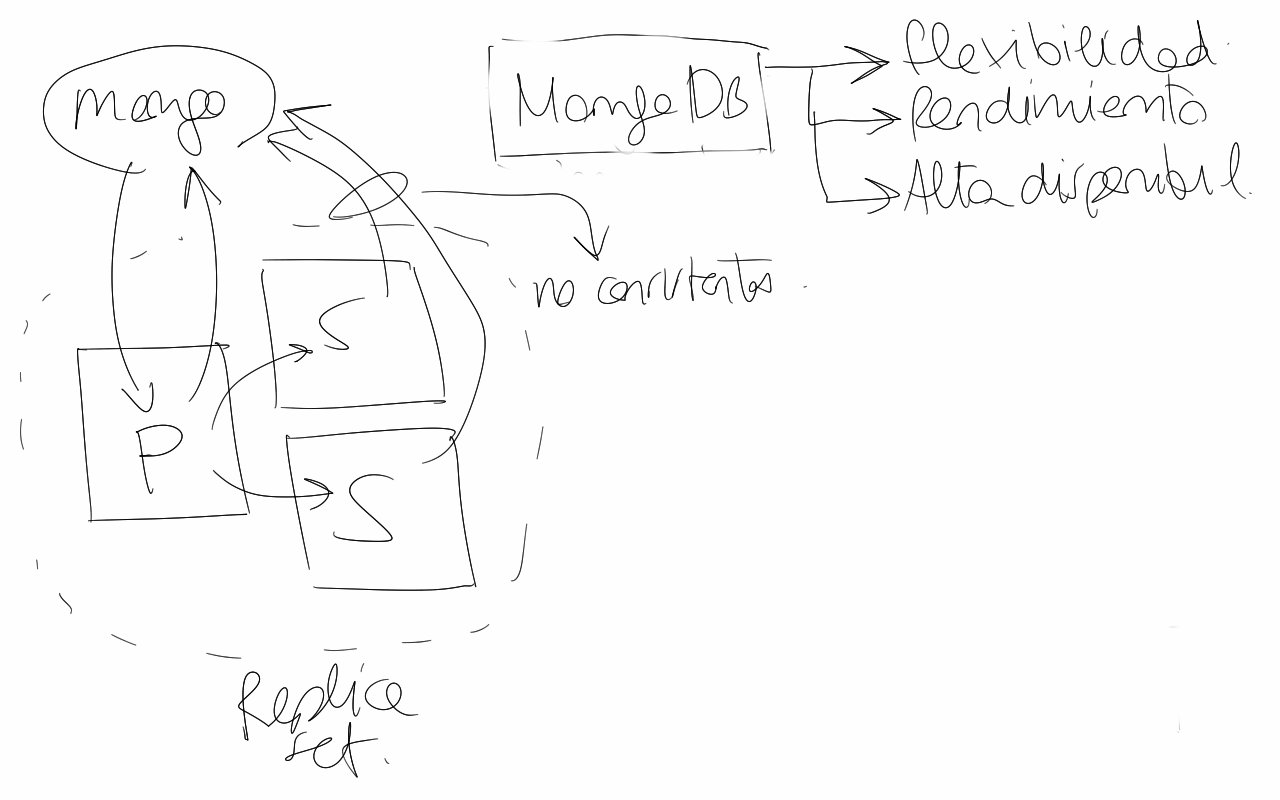 mongo
MongoDB
flexibilidad
Rendimiento
Alta disponibil.
no consistentes
S
P
S
Replica
set.